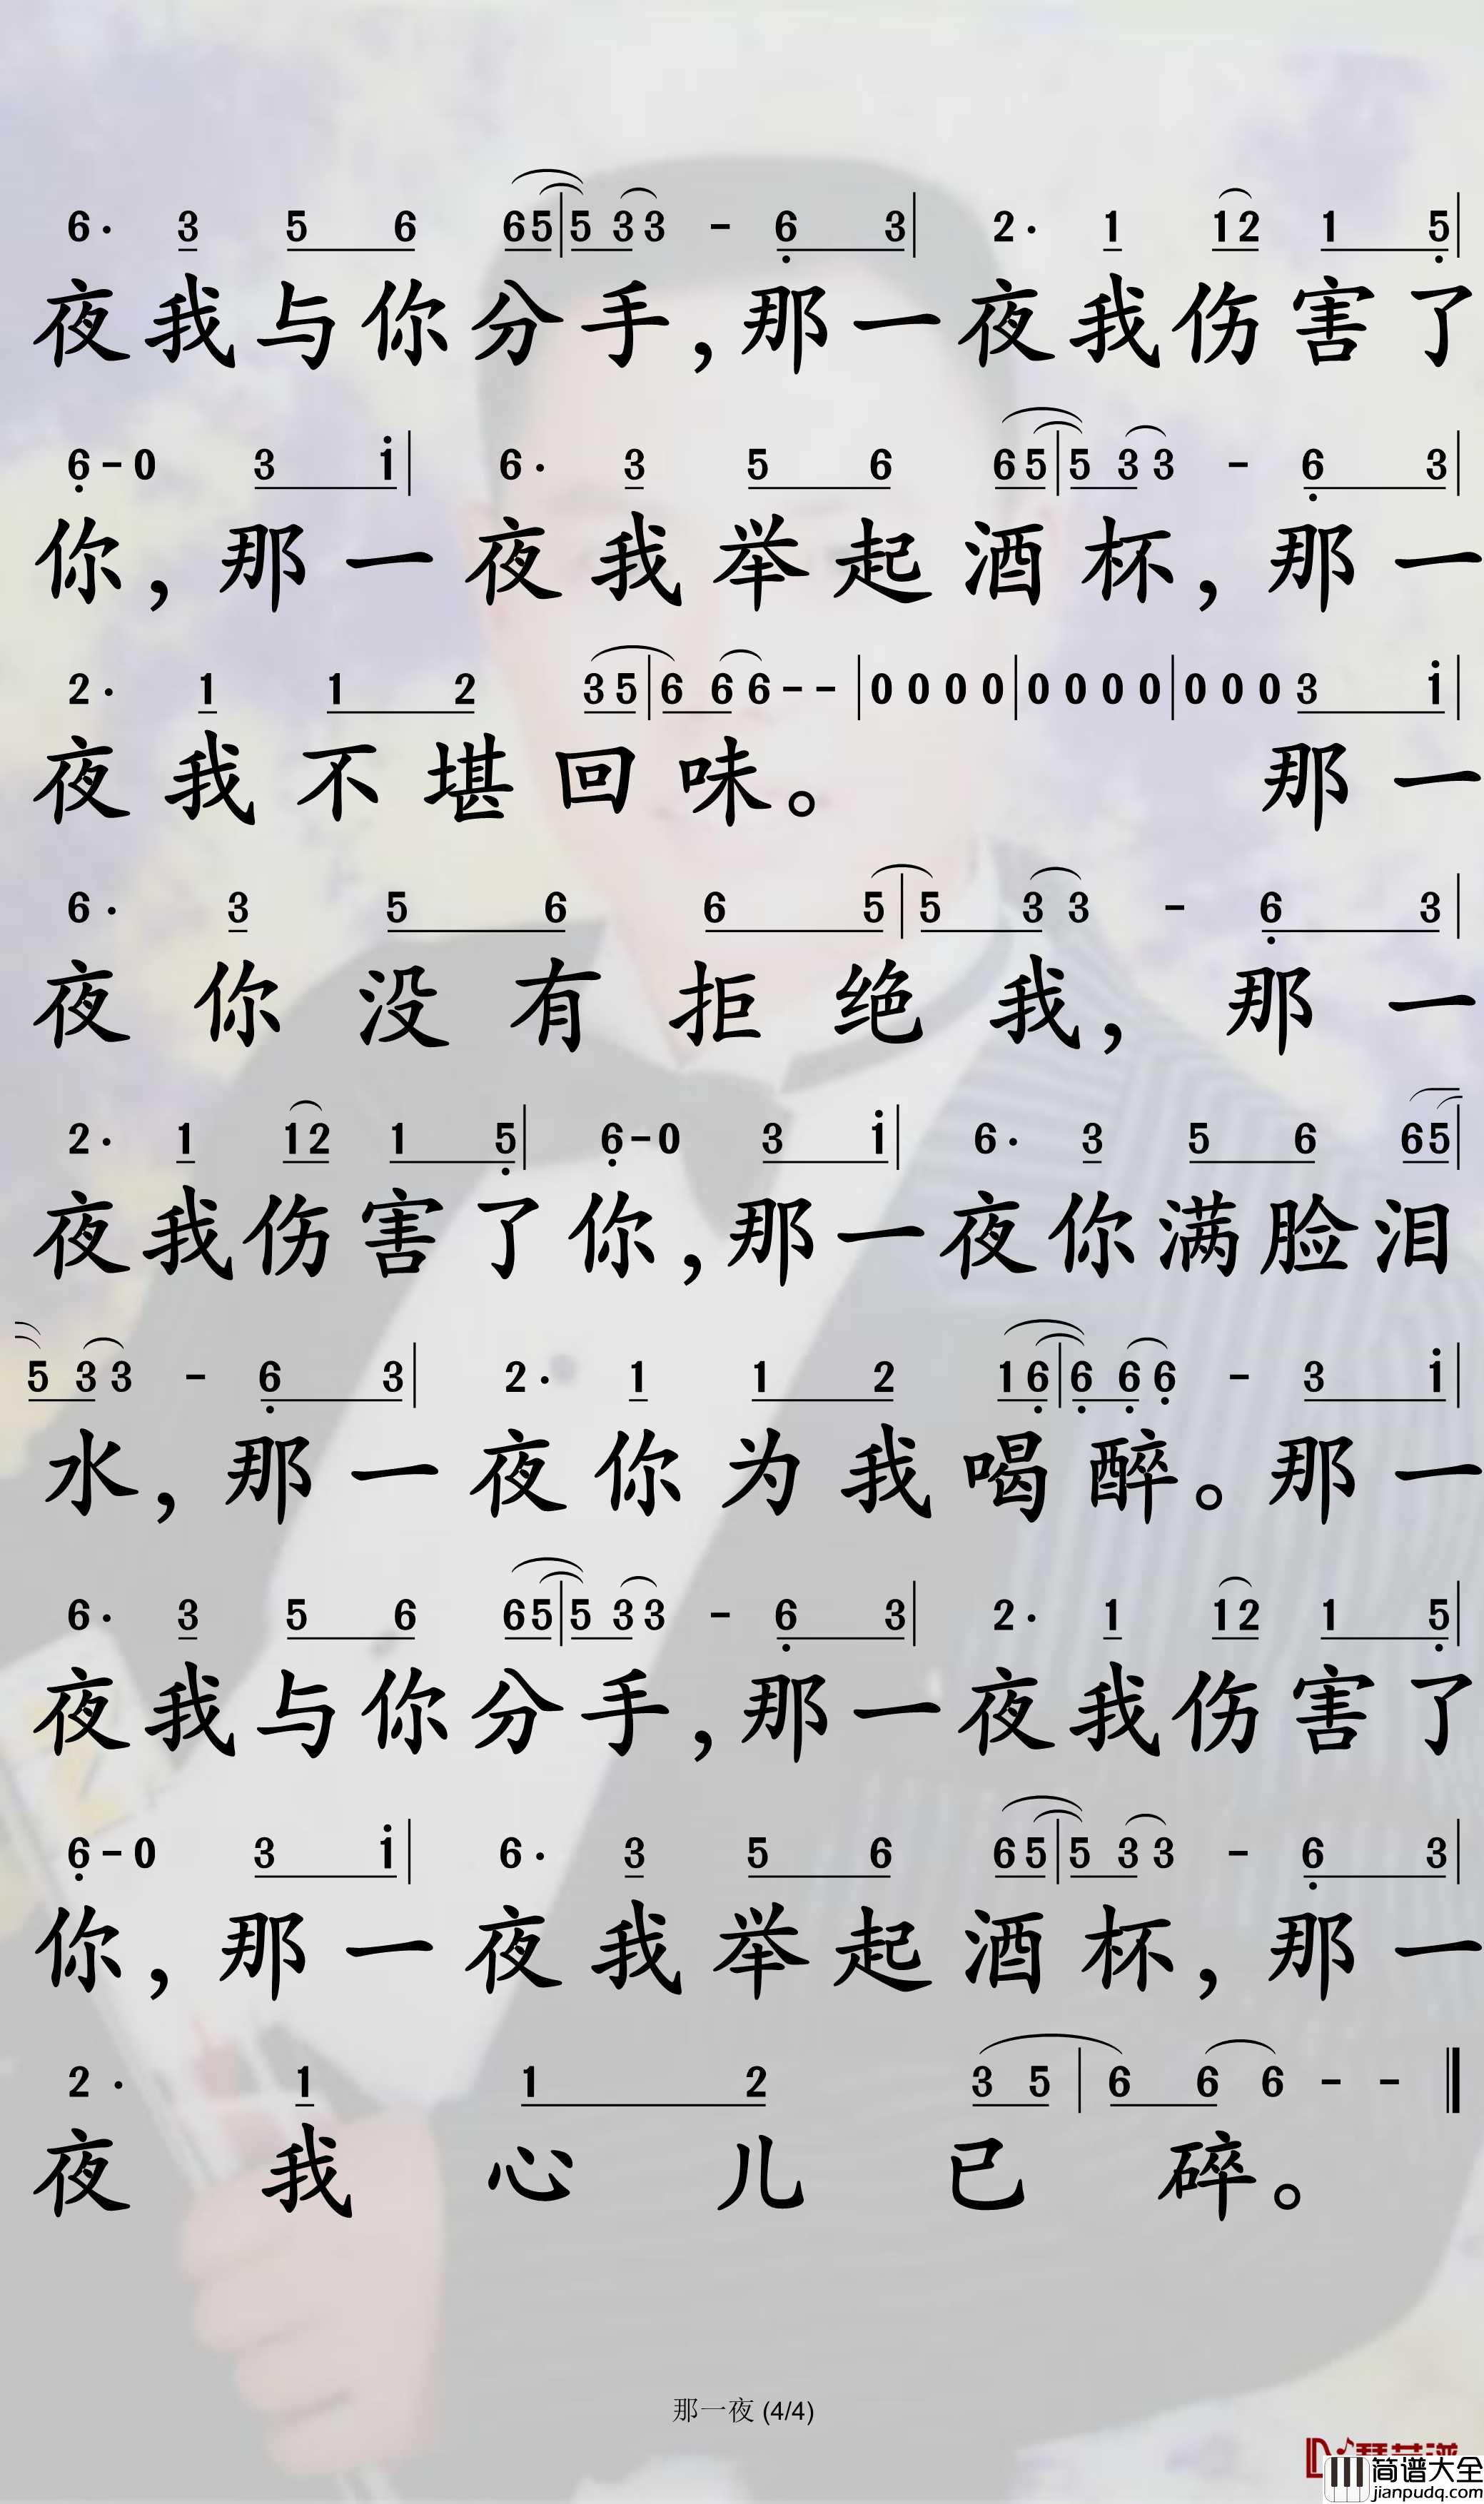 6· 3 5 6 65|5 33 - 6 3| 2· 1 12 1 5|
夜我与你分手,那一夜我伤害了
6-0 3 i| 6· 3 5 6 65|5 33 - 6 3|
你,那一夜我举起酒杯,那一
2· 1 1 2 35|6 66-- |0 0 0 0|0 0 0 0|0 0 0 3 i|
夜我不堪回味。 那一
6· 3 5 6 6 5|5 3 3 - 6 3|
夜你没有拒绝我,那一
2· 1 12 1 5| 6-0 3 i| 6· 3 5 6 65|
夜我伤害了你,那一夜你满脸泪
5 33 - 6 3| 2· 1 1 2 16|6 66 - 3 i|
水,那一夜你为我喝醉。那一
6· 3 5 6 65|5 33 - 6 3| 2· 1 12 1 5|
夜我与你分手,那一夜我伤害了
6-0 3 i| 6· 3 5 6 65|5 33 - 6 3|
你,那一夜我举起酒杯,那一
2· 1 1 2 3 5 | 6 6 6 - - ‖
夜我心儿已碎。
那一夜 (4/4)
简谱大全
jianpudq.com